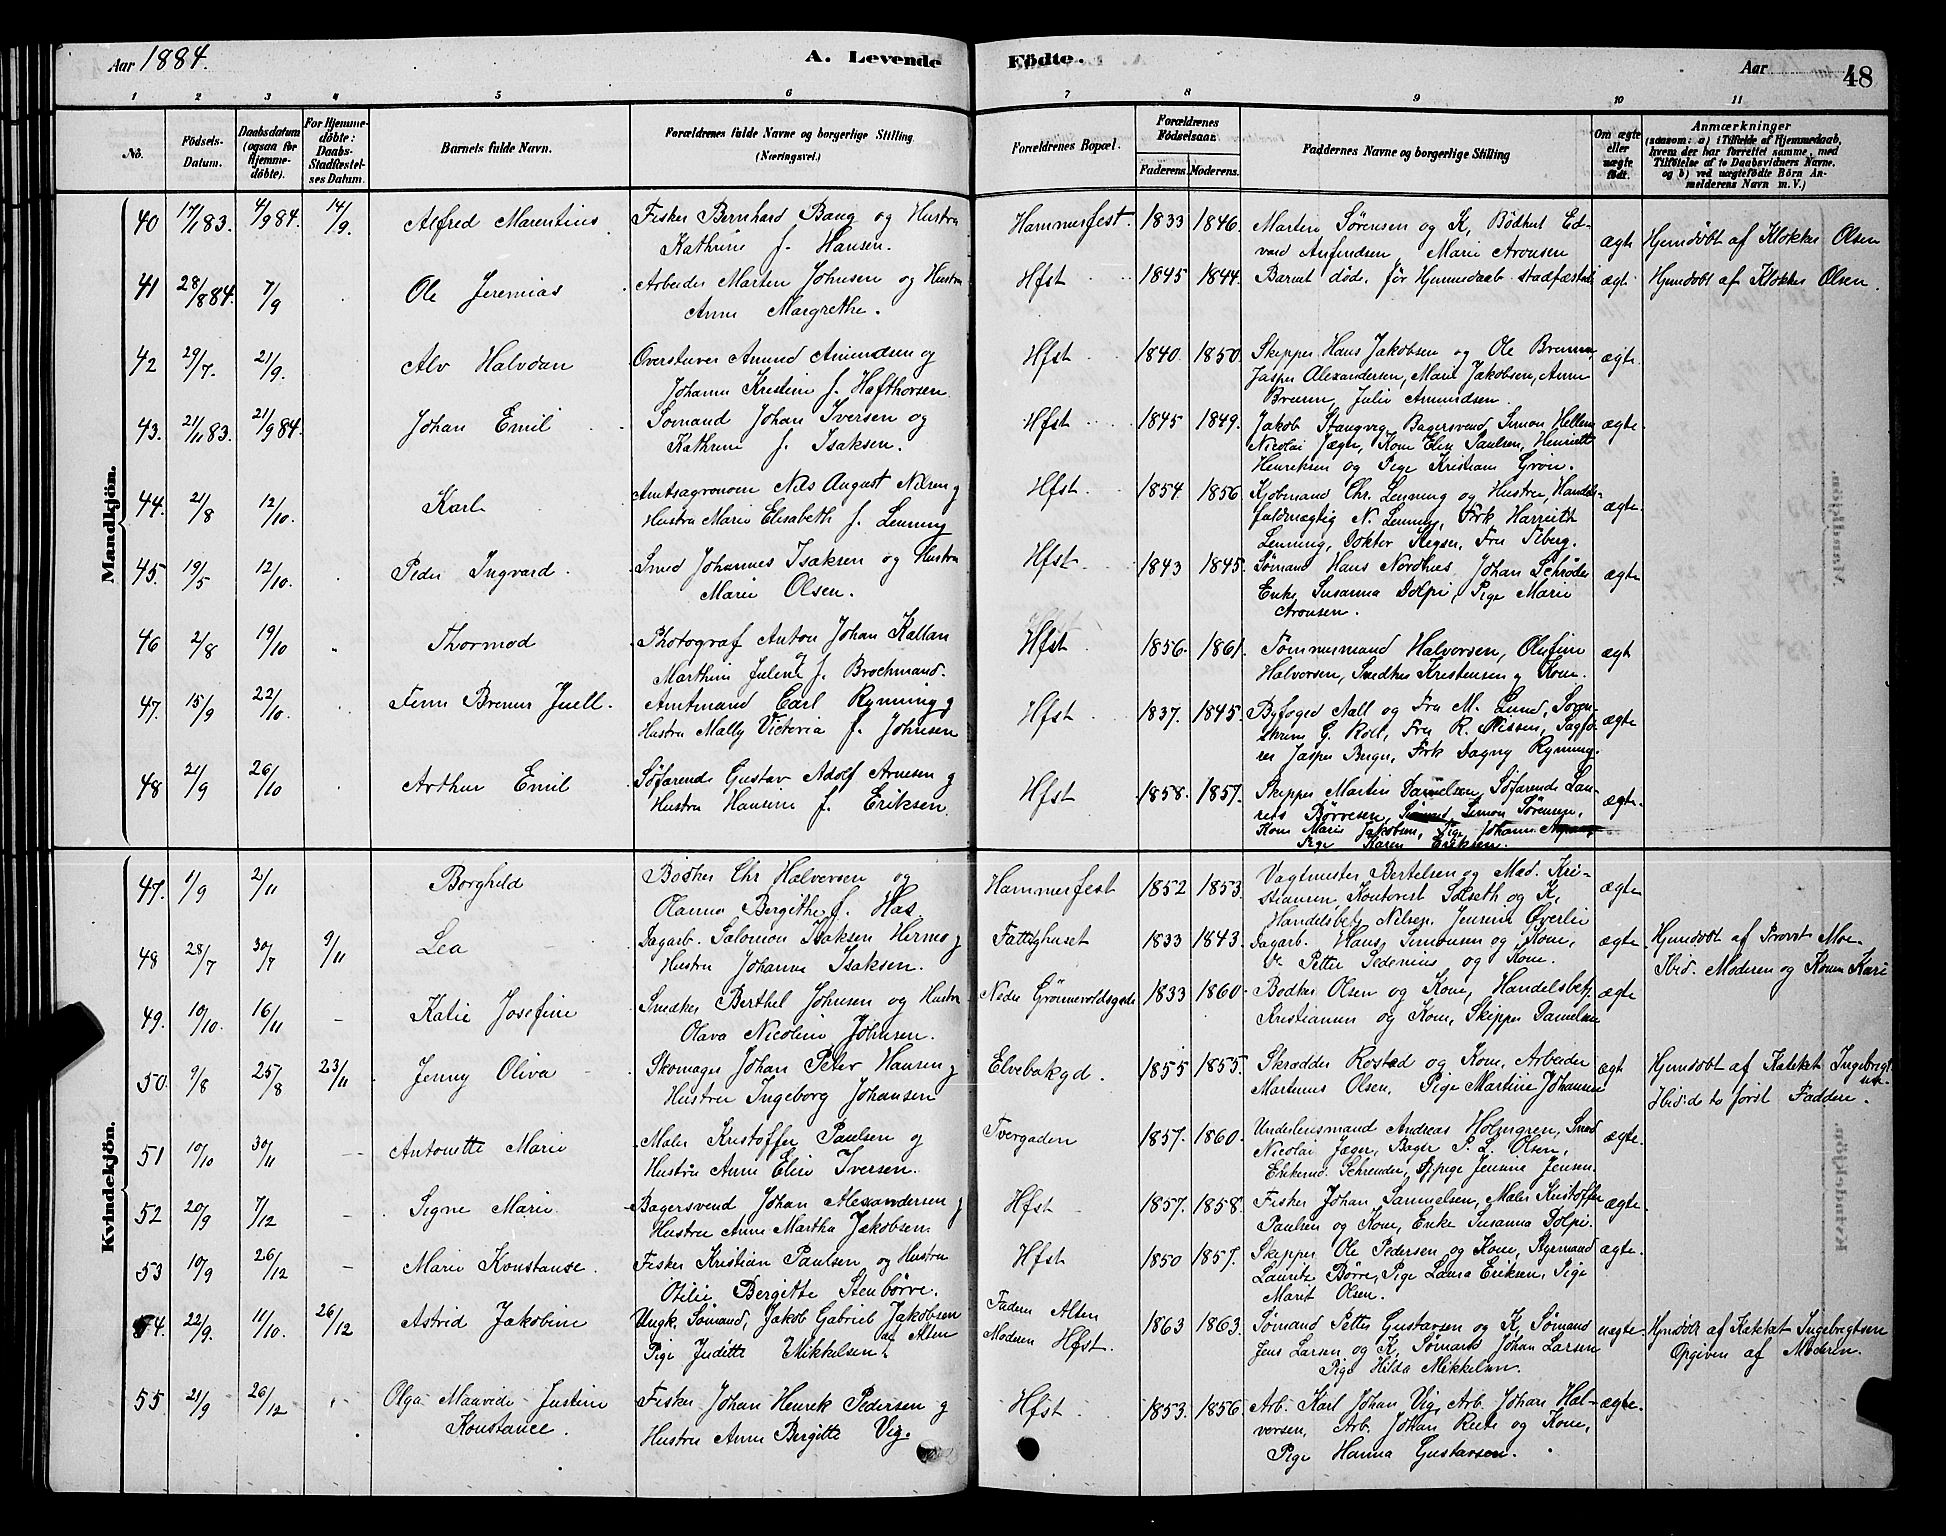 Aar 1884. A. Levende Födte. Aar 48
1 2 3 4 5 6 7 8 9 10 11
No.
Födsels-
Datum.
Daabsdatum
(ogsaa for
Hjemme-
döbte).
For Hjemme-
döbte:
Daabs-
Stadfæstel-
ses Datum.
Barnets fulde Navn.
Forældrenes fulde Navne og borgerlige Stilling
(Næringsvei.)
Forældrenes Bopæl.
Forældrenes
Födselsaar.
Faderens. Moderens.
Faddernes Navne og borgerlige Stilling
Om ægte
eller
uægte
födt.
Anmærkninger
(saasom: a) i Tilfælde af Hjemmedaab,
hvem der har forrettet samme, med
Tilföielse af to Daabsvidners Navne.
og b) ved uægtefödte Börn An-
melderens Navn m. V.)
Mandkjön.
40 17/1 83. 4/9 84. 14/9. Alfred Marentius Fisker Bernhard Bang og Hustru Hammerfest. 1833 1846. Martin Sørensen og K, Bödker Ed-
Kathrine f. Hansen. vard Anfindsen, Marie Aronsen ægte Hjemdöbt af Klokker Olsen
41 28/8 84. 7/9 Ole Jeremias Arbeider Marten Johnsen og Hustru Hfst 1845 1844. Barnet döde, för Hjemmedaab stadfæstedes ægte Hjemdöbt af Klokker Olsen.
Anne Margrethe.
42 29/7. 21/9. Alv Halvdan Overstuver Amund Amundsen og Hfst 1840. 1850. Skipper Hans Jakobsen og Ole Bremen, ægte.
Johanne Kristine f. Hafthorsen. Jasper Alexandersen, Marie Jakobsen, Anne
Bremen, Julie Amundsen.
43. 21/11 83. 21/9 84. Johan Emil Sømand Johan Iversen og Hfst 1845 1849. Jakob Stangvig Bagersvend Simon Hellem ægte.
Kathrine f. Isaksen. Nicolai Jæger, Kone Elen Paulsen, Henriette
Henriksen og Pige Kristiane Grøn.
44. 21/8 12/10. Karl Amtsagronom Nils August Nilsen g Hfst. 1854. 1856 Kjøbmand Chr. Lenning og Hustru, Handels- ægte.
Hustru Marie Elisabeth f. Lenning fuldmægtig N. Lenning, Frk Harrieth
Lenning, Doktor Kegser, Fru Feberg.
45. 19/5 12/10. Peder Ingvard. Smed Johannes Isaksen og Hustru Hfst. 1843 1845. Sømand Hans Nordnes, Johan Schrøder ægte
Marie Olsen. Enke Susanna Dolpi, Pige Marie
Aronsen.
46 2/8 19/10 Thormod Photograf Anton Johan Kallan Hfst 1856. 1861. Tømmermand Halvorsen, Olufine ægte
og Marthine Juline f. Brochmand. Halvorsen, Snedker Kristensen g Kone.
47. 15/9 22/10. Finn Bremer Juell. Amtmand Carl Rynning g Hfst 1837. 1845. Byfoged Aall og Fru M. Lund, Soren- ægte
Hustru Mally Victoria f. Johnsen skriver G. Roll, Fru R. Nissen, Sagfø-
rer Jasper Berger, Frk Dagny Rynning.
48 21/9 26/10 Arthur Emil Söfarende Gustav Adolf Arnesen g Hfst 1858. 1857. Skipper Martin Danielsen, Söfarende Lau- ægte.
Hustru Hansine f. Eriksen. rits Børresen, Simon Sørensen,
Kone Marie Jakobsen, Pige Johanne
Pige Karen Eriksen.
Kvindekjön.
47. 1/9 2/11 Borghild Bödker Chr Halversen og Hammerfest 1852 1853. Vagtmester Bertelsen og Mad. Kri- ægte
Olanna Bergithe f. Has. stiansen, Kontorist Solseth og K,
Handelsbetj Nilsen, Jensine Øverlie
48 28/7 30/7 9/11 Lea Dagarb. Salomon Isaksen Hermo g Fattighuset 1833 1843. Dagarb. Hans Simonsen og Kone, ægte. Hjemdöbt af Provst Moe
Hustru Johanne Isaksen. Petter Sedenius og Kone. Ibid. Moderen og Konen Kari
49. 10/10. 16/11 Katie Josefine Snedker Berthel Johnsen og Hustru Nedre Grönnevoldsgade 1833 1860. Bodker Olsen og Kone, Handelsbetj. ægte
Olava Nicoline Johnsen. Kristiansen og Kone, Skipper Danielsen
50. 9/8 25/8 23/11 Jenny Oliva Skomager Johan Peter Hansen g Elvebakgd. 1855 1855. Skrædder Rostad og Kone, Arbeider ægte Hjemdöbt af Kateket Ingebrigt-
sen
Hustru Ingeborg Johansen Martinus Olsen, Pige Martine Johansen Ibid: de to först Faddere.
51 10/10 30/11 Antonette Marie Maler Kristoffer Paulsen og Tvergaden 1857. 1860. Underlensmand Andreas Holmgren, Smed ægte.
Hustru Anne Elen Iversen. Nicolai Jæger, Bager P. L. Olsen,
Enkemd. Schrender, Pige Jensine Jensen.
52 20/9 7/12 Signe Marie Bagersvend Johan Alexandersen g Hfst 1857. 1858. Fisker Johan Samuelsen, Maler Kristoffer ægte.
Hustru Anne Martha Jakobsen. Paulsen og Kone, Enke Susanna Dolpi.
53 10/9 26/12 Marie Konstanse. Fisker Kristian Paulsen, og Hustru Hfst 1850 1857. Skipper Ole Pedersen og Kone, Styrmand ægte.
Otilie Bergitte Stenbörve. Lauritz Börre, Pige Laura Eriksen, Pige
Marit Olsen.
54. 22/9. 11/10. 26/12 Astrid Jakobine Ungk. Sömand, Jakob Gabriel Jakobsen Faderen Alten 1863 1863. Sömand Petter Gustavsen og K, Sömand uægte. Hjemdöbt af Kateket Ingebrigtsen
af Alten Moderen Hfst.
Pige Juditte Mikkelsen. Jens Larsen og K, Sömand Johan Larsen Opgiven af Moderen.
Pige Hilda Mikkelsen
55 21/9 26/12 Olga Maavede Justine Fisker Johan Henrik Pedersen g Hfst 1853. 1856. Arb. Karl Johan Vig, Arb. Johan Hal- ægte.
Konstance. Hustru Anne Bergitte Vig. versen, Arb. Johan Riise og Kone,
Pige Hanna Gustavsen.